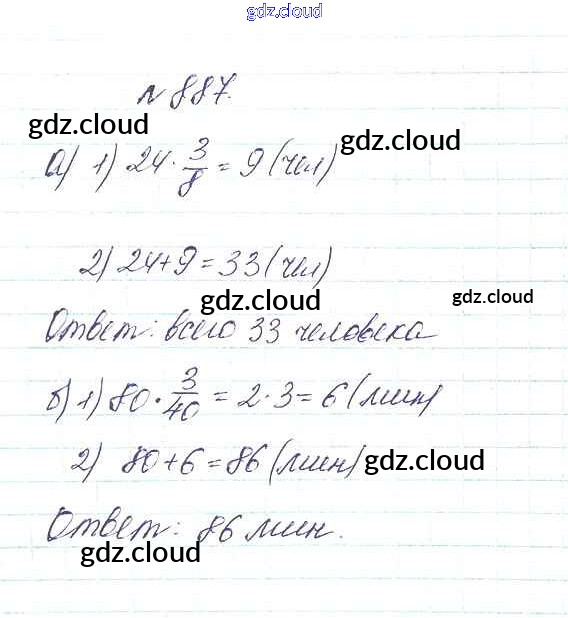 gdz.cloud
№ 887.
gdz.cloud
gdz.cloud
а) 1) 24 · 3/8 = 9 (чел)
2) 24+9 = 33 (чел)
gdz.cloud
gdz.cloud
Ответ: всего 33 человека
б) 1) 80 · 3/40 = 2 · 3 = 6 (мин)
2) 80+6 = 86 (мин)
gdz.cloud
Ответ: 86 мин.
gdz.cloud